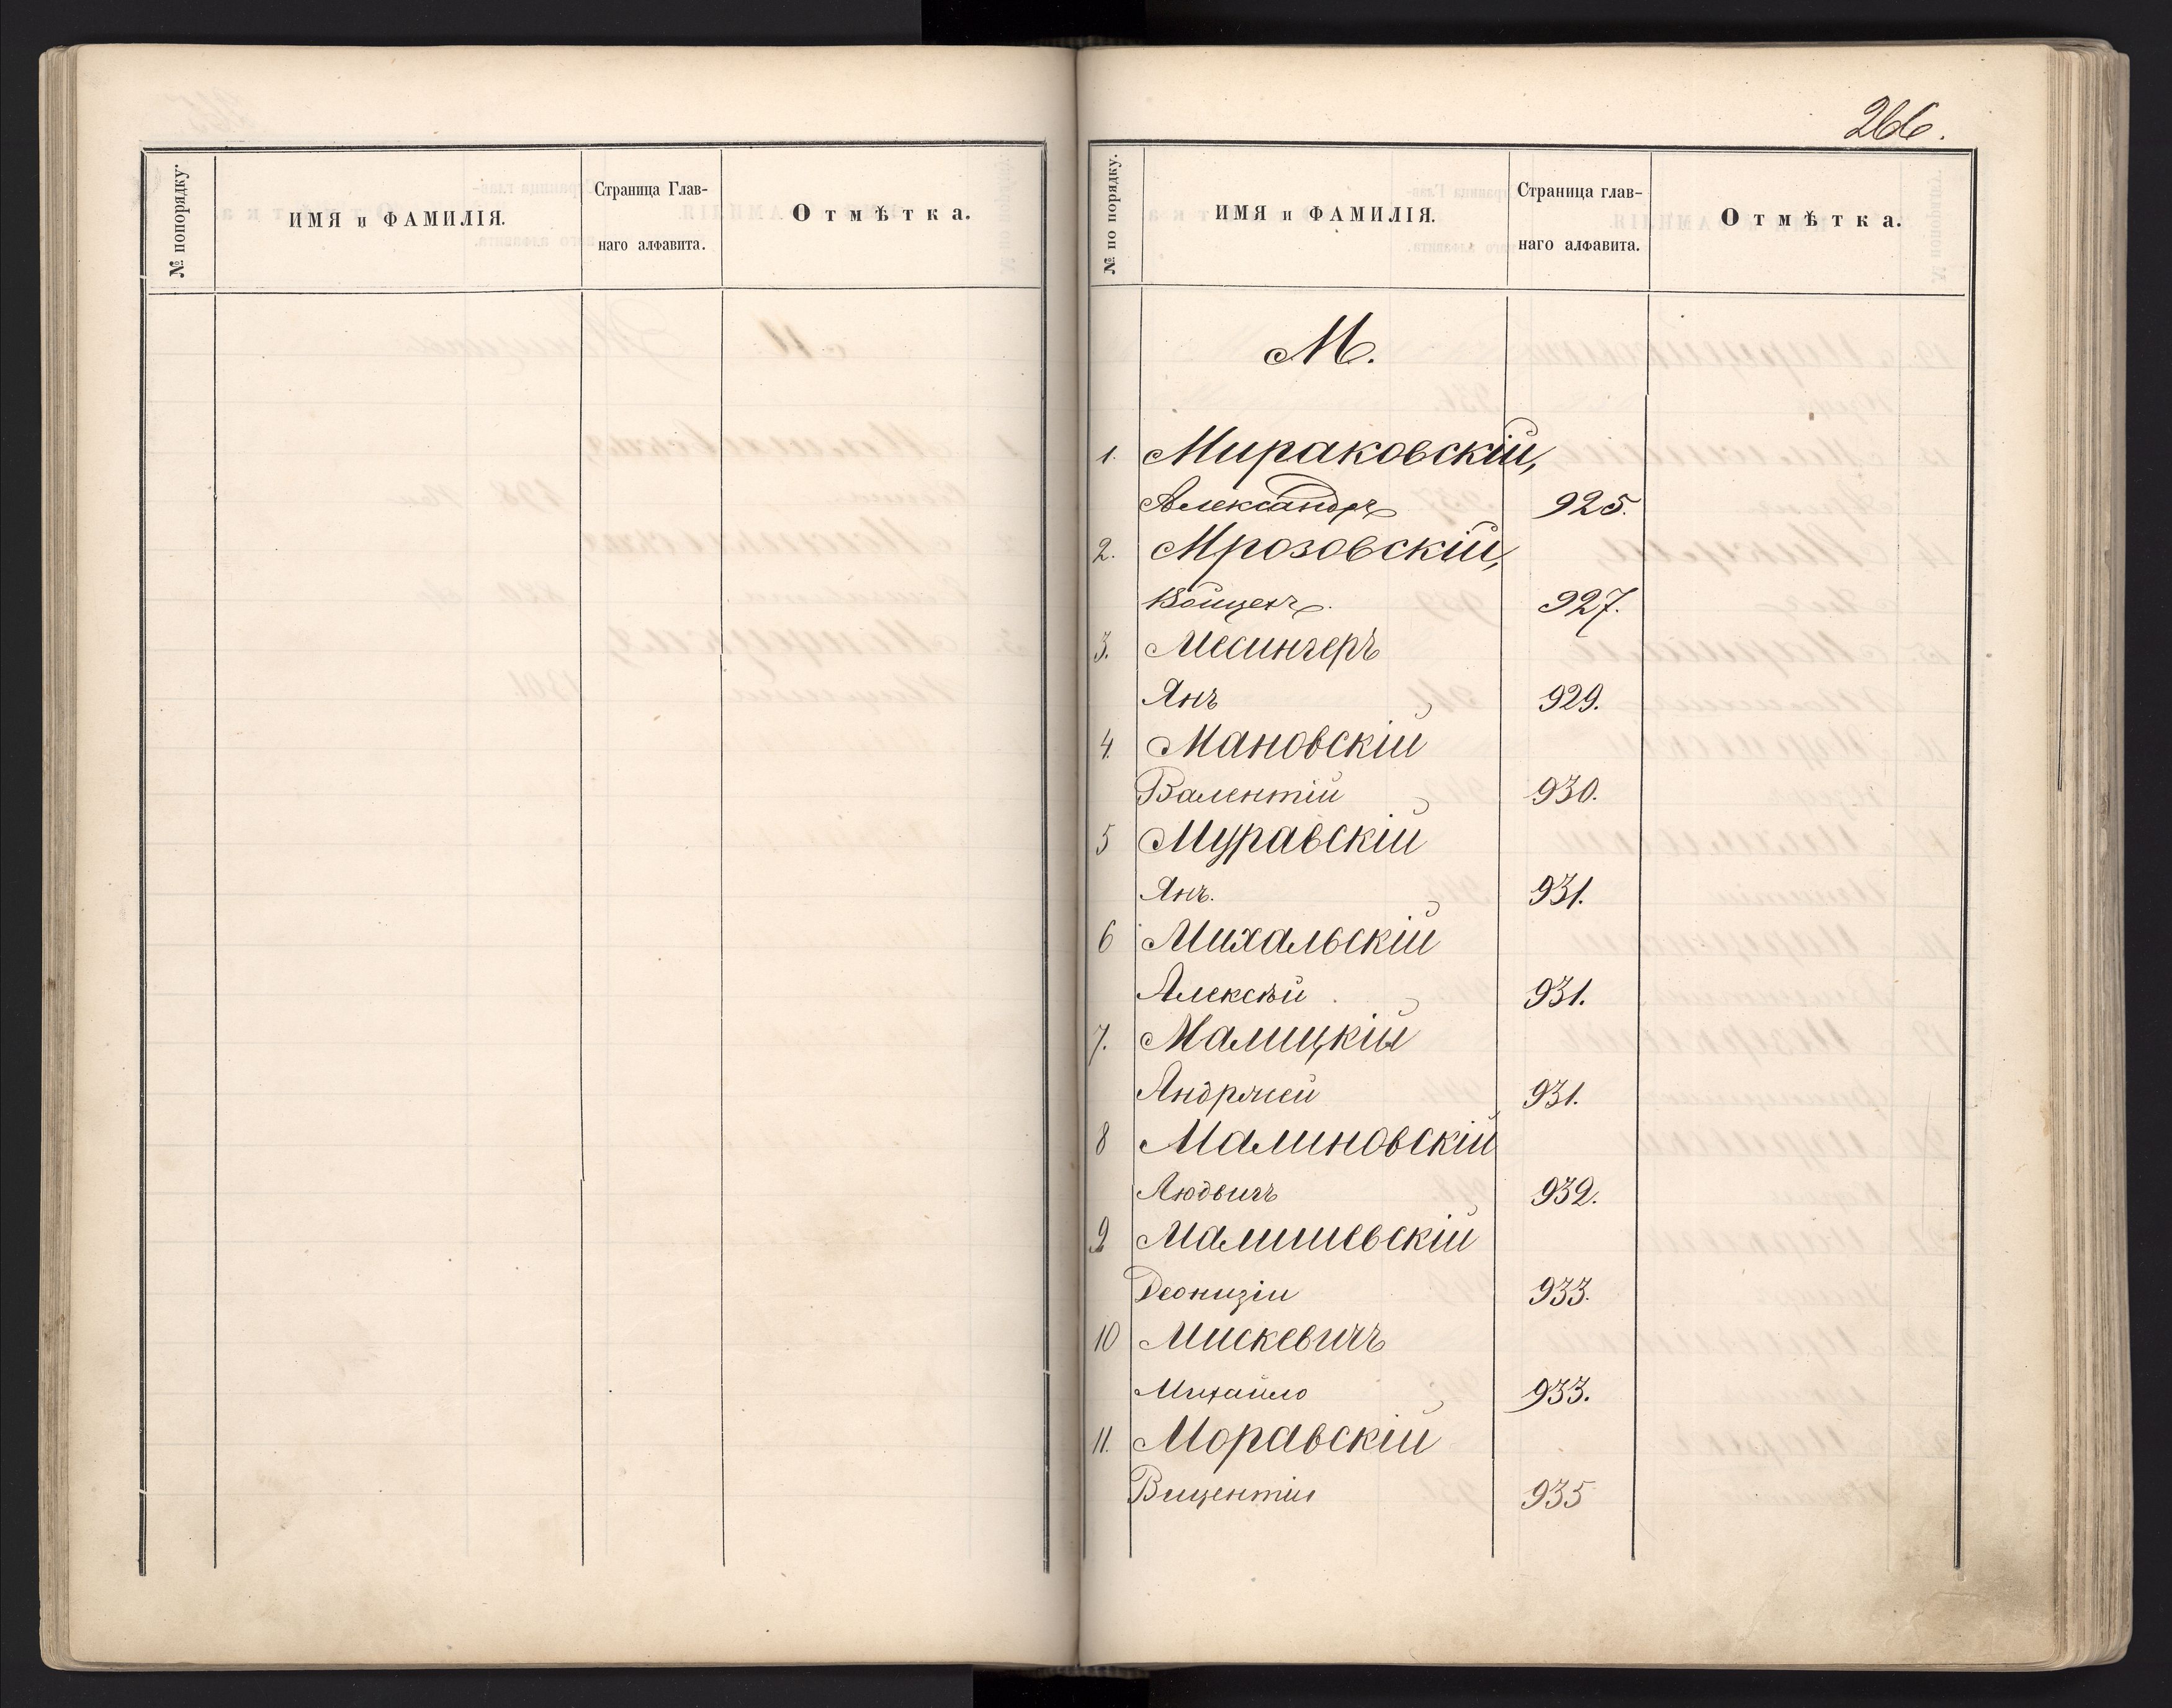 № попорядку.
ИМЯ и ФАМИЛІЯ.
Страница Глав-
наго алфавита.
Отмѣтка.
266.
№ по порядку.
ИМЯ и ФАМИЛІЯ.
Страница глав-
наго алфавита.
Отмѣтка.
М.
1. Мираковскій,
Александръ 925.
2. Мрозовскій,
Войцехъ. 927.
3. Месингеръ
Янъ 929.
4. Мановскій
Валентій 930.
5 Муравскій
Янъ. 931.
6 Михальскій
Алексѣй 931.
7. Малицкій
Андржей 931.
8 Малиновскій
Людвигъ 932.
9 Малишевскій
Деонизіи 933.
10 Мискевичъ
Михайло 933.
11. Моравскій
Вицентіи 935